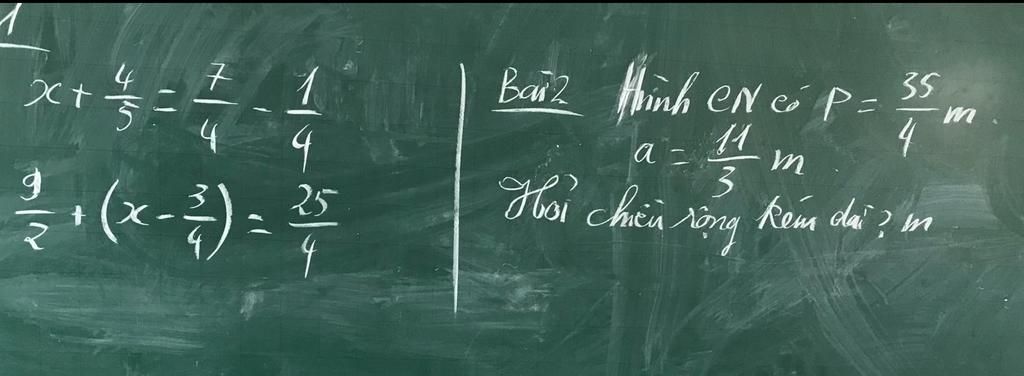 1
x + 4/5 = 7/4 - 1/4
9/2 + (x - 3/4) = 25/4
Bài 2 Hình CN có P = 35/4 m.
a = 11/3 m
Hỏi chiều rộng kém dài ? m